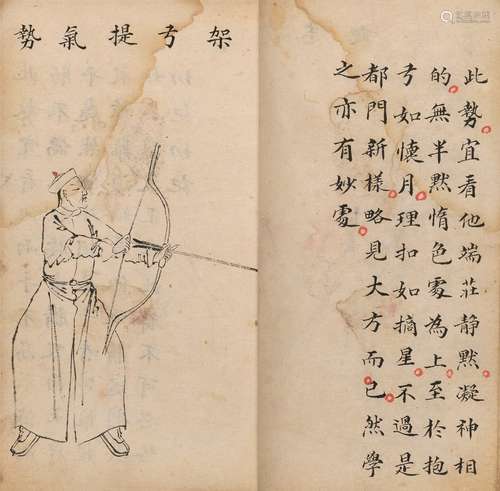 架弓提氣勢
此勢宜看他端莊靜默凝神相
的無半點惰色處為上至於抱
弓如懷月理扣如摘星不過是
都門新樣略見大方而已然學
之亦有妙處